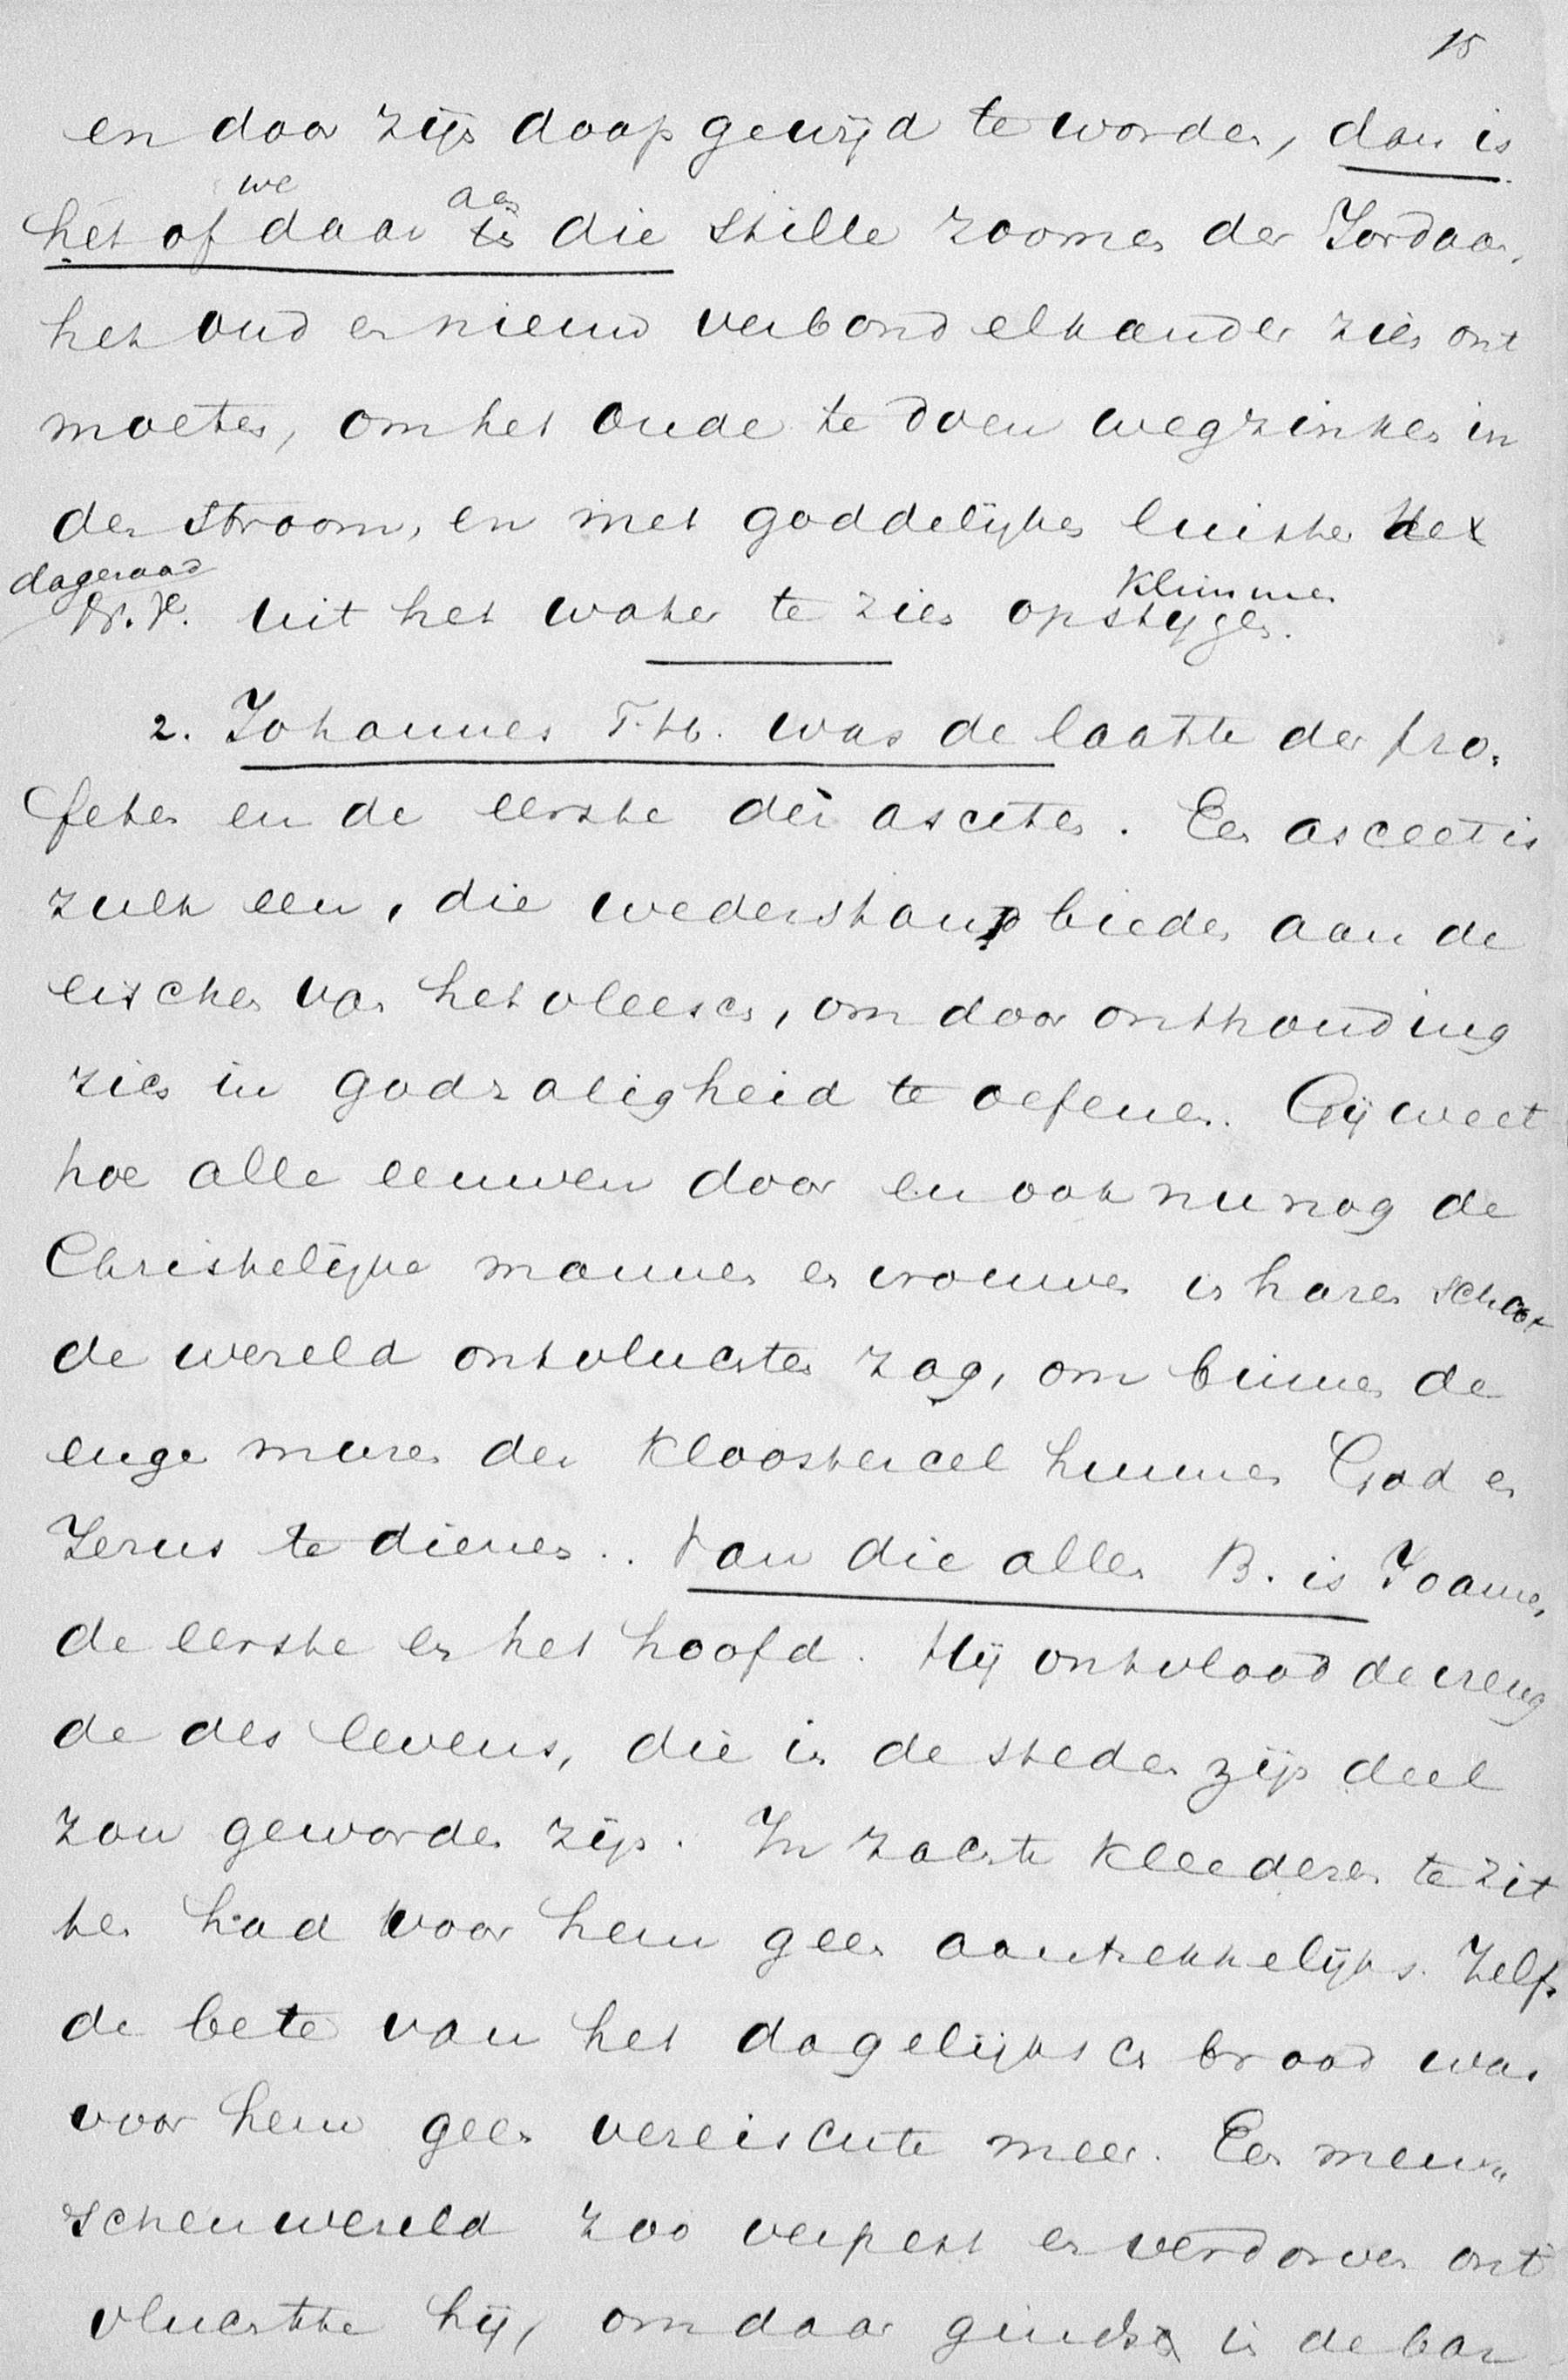 15
en door zijn doop gewijd te worden, dan is
het of we daar aan die stille zoomen der Jordaan,
het oud en nieuw verbond elkander zien ont
moeten, om het oude te doen wegzinken in
den stroom, en met goddelijken luister het
dageraad
N. V. uit het water te zien opstijgen.
klimmen
2. Johannes T. H. was de laatste der pro-
feten en de eerste der asceten. Een asceet is
zulk een, die wederstand bieden aan de
eischen van het vleesch, om door onthouding
zich in godzaligheid te oefenen. Gij weet
hoe alle eeuwen door en ook nu nog de
Christelijke mannen en vrouwen in haren schoot
de wereld ontvluchten zag, om binnen de
enge muren der kloostercel hunnen God en
Jezus te dienen.. Van die allen B. is Joannes
de eerste en het hoofd. Hij ontvlood de vreug
de des levens, die in de steden zijn deel
zou geworden zijn. In zachte kleederen te zit
ten had voor hem geen aantrekkelijks. Zelfs
de bete van het dagelijksch brood was
voor hem geen vereischte meer. Een men-
schenwereld zoo verpest en verdorven ont
vluchtte hij, om daar ginds in de bar